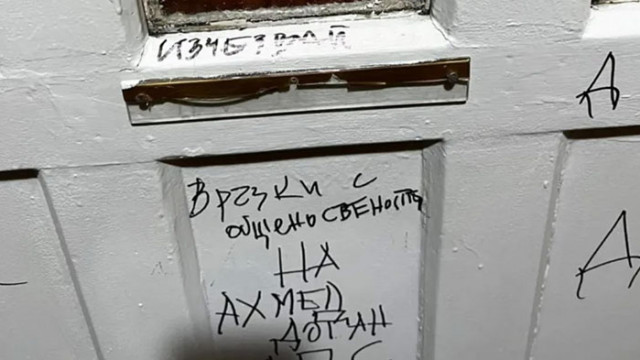 ИЗЧЕЗВАЙ
А
Врзки с
общеносвеност
НА
АХМЕД
ДОГАН
Д